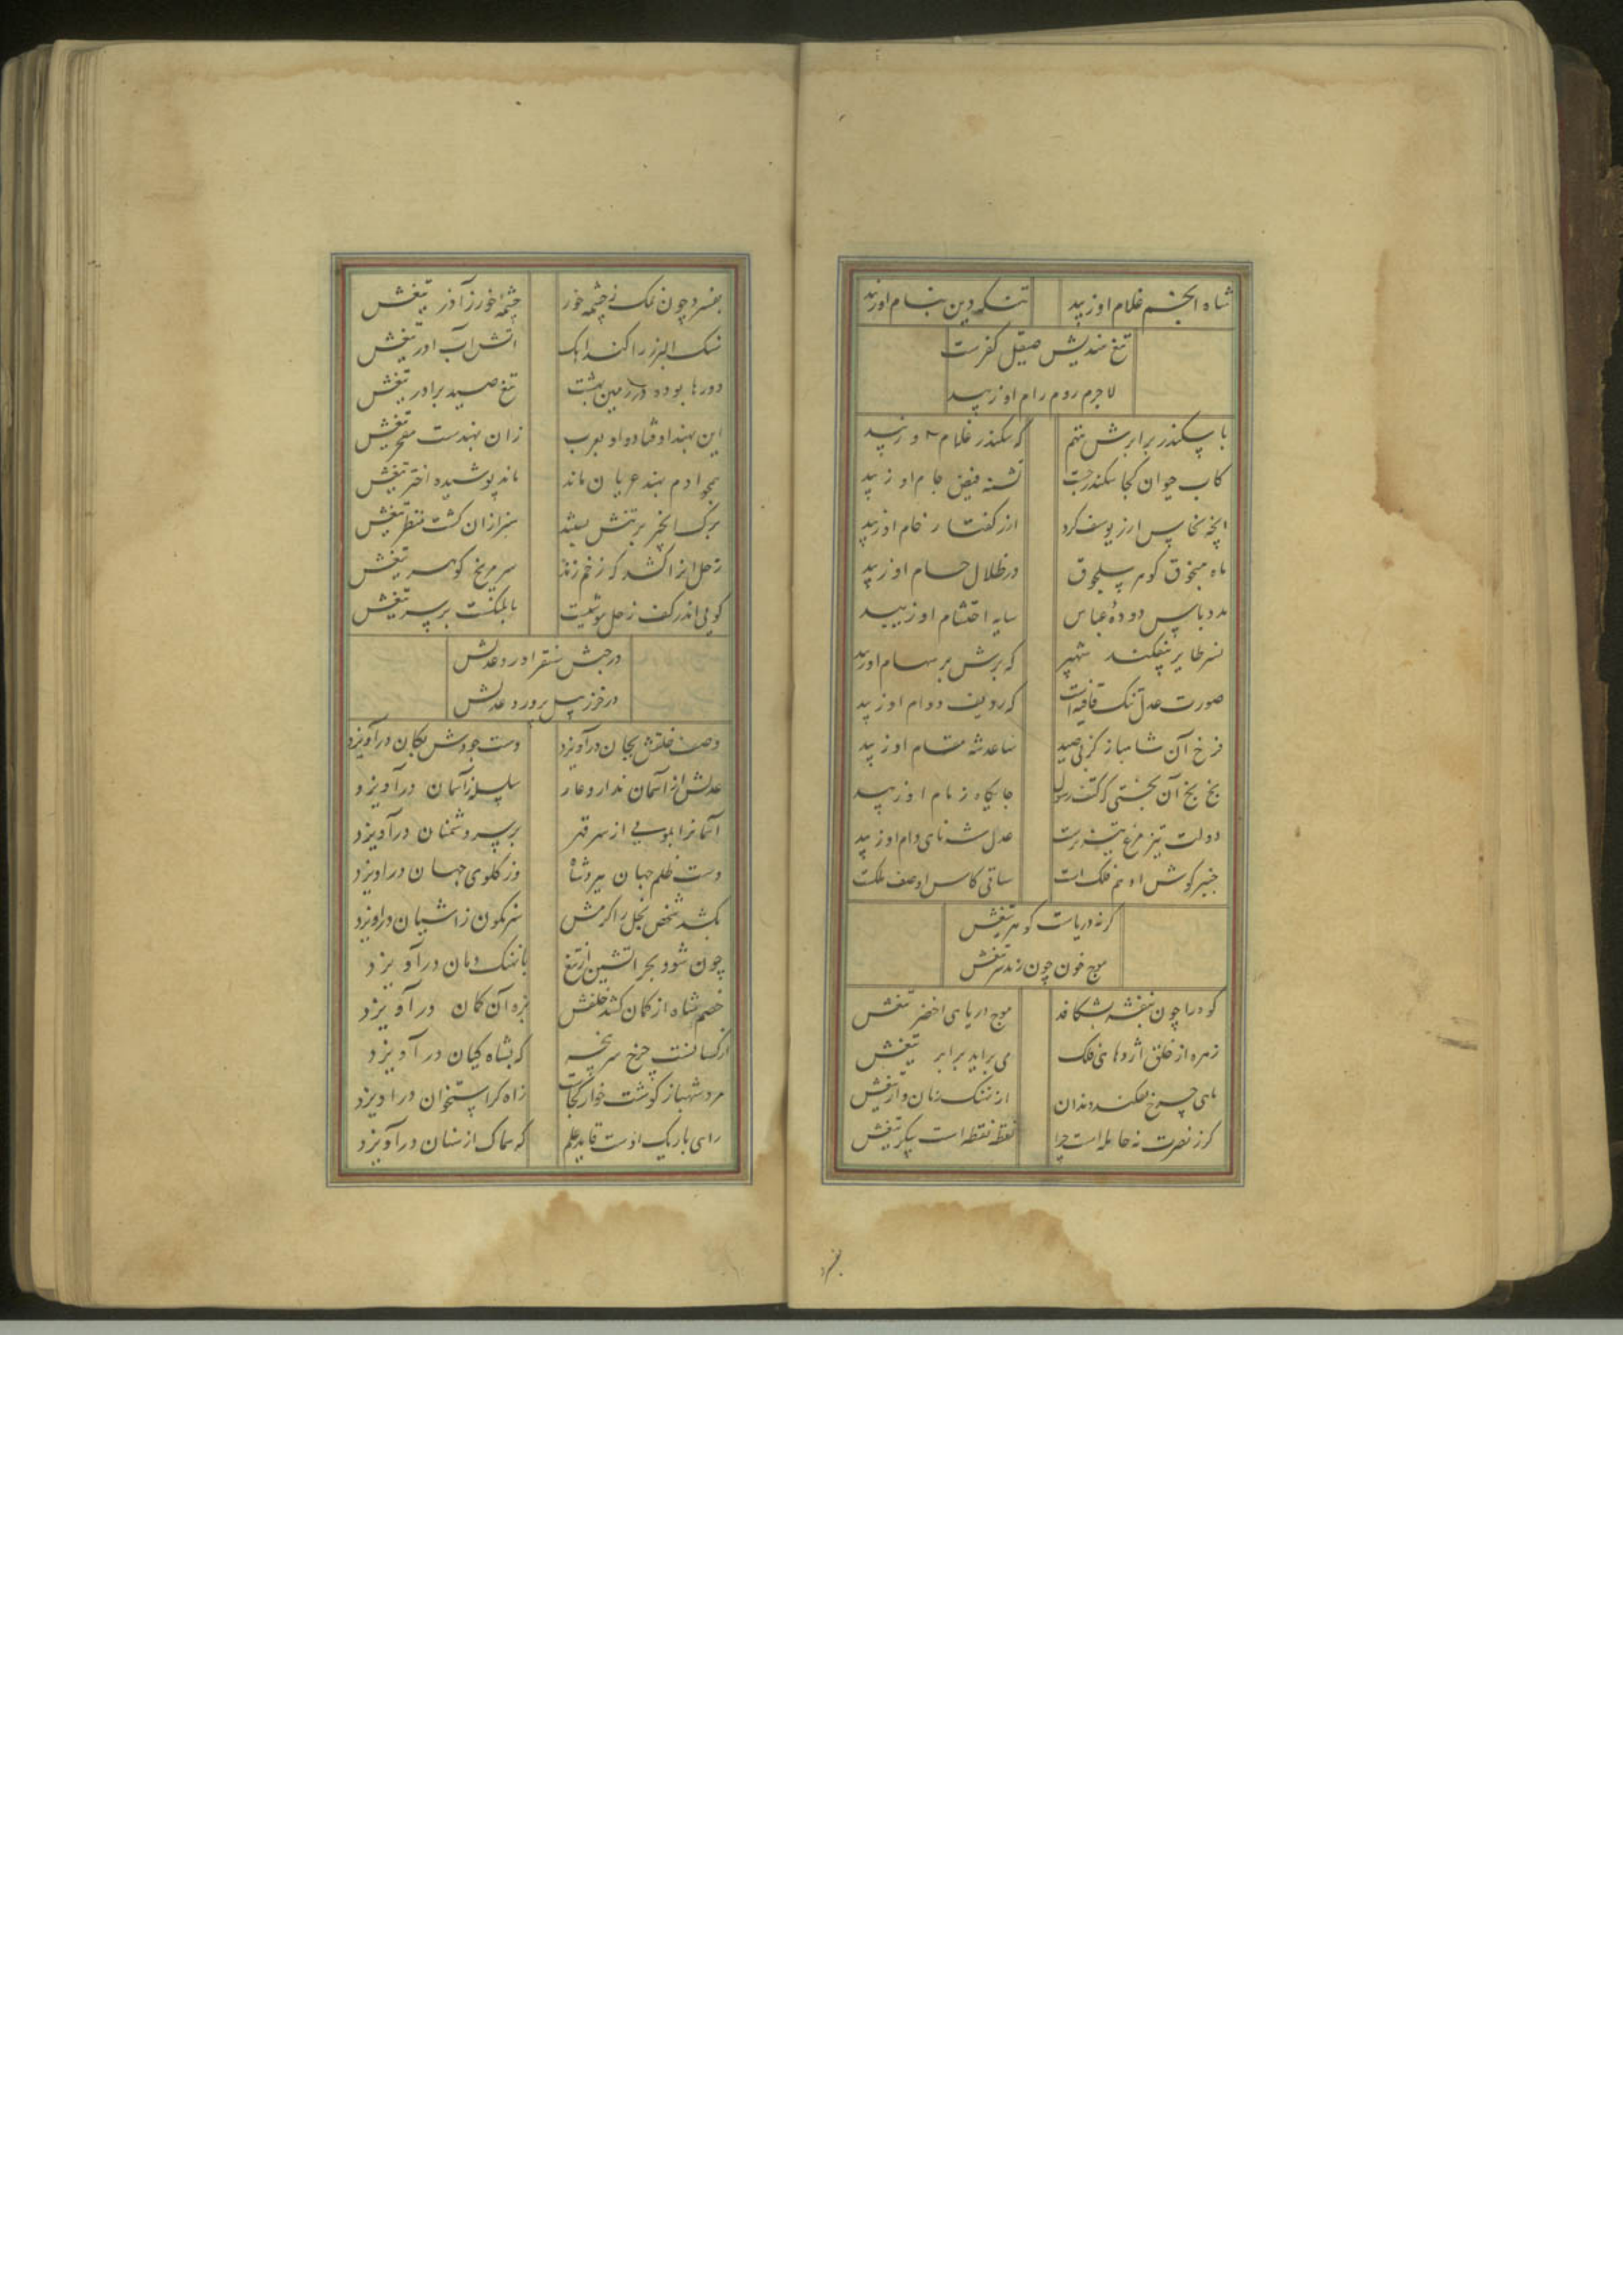 شاه انجم غلام او زیبد سکه دین بنام او زیبد
تیغ هندیش صیقل کفرست
لاجرم روم رام او زیبد
با سکندر برابرش ننهم که سکندر غلام او زیبد
کاب حیوان کجا سکندر جست تشنه فیض جام او زیبد
از یوسف کرد از کفتار خام او زیبد
ماه منجوق کوهر سلجوق در ظلال حسام او زیبد
مدد باس دوده عباس سایه احتشام او زیبد
نسر طایر بیفکند شهپر که پرش بر سهام او زیبد
صورت عدل تنک قافیه است که ردیف دوام او زیبد
فرخ آن شاهباز کز پی صید ساعد شه مقام او زیبد
بخ بخ آن بختی که کتف رسول جایکاه زمام او زیبد
دولت تیز مرغ تیز پرست عدل شه نای دام او زیبد
خنبر کوس او خم فلک است ساقی کاس او صف ملکت
کرنه دریاست کوهر تیغش
موج خون چون زند سر تیغش
کوه را چون بنفشه بشکافد موج دریای اخضر تیغش
زهره از حلق اژدهای فلک می براید برابر تیغش
ماهی چرخ بفکند دندان از نهنک زبان و از تیغش
کرز نصرت نه حامله است چرا نقطه نقطه است پیکر تیغش
بفسرد
بفسرد چون نمک ز چشمه خور چشمه خور ز آذر تیغش
سنک البرز را کند اهک اتش آب اور تیغش
دورها بوده در زمین بهشت تیغ صید برادر تیغش
این بهند اوفتاده او بعرب زان بهندست مفخر تیغش
همچو ادم بهند عریان ماند ماند پوشیده اختر تیغش
برک انجیر بر تنش بستند سبز ازان کشت منظر تیغش
زحل انرا کشد که زخم زند سر مریخ کوهر تیغش
کویی اندر کف زحل موتیست بابلنکست بر سر تیغش
در حبش سنقر اورد عدلش
در خزر پیل پرورد عدلش
وصف خلقش بجان درآویزد دست جودش بکان درآویزد
عدلش از آسمان ندارد عار سلسله زآسمان درآویزد
آسمانرا بمویی از سر قهر بر سر دشمنان درآویزد
دست ظلم جهان ببرد شاه وز کلوی جهان دراویزد
بکشد شخص بخل را کرمش سرنکون زاشیان دراویزد
چون شود بحر اتشین از تیغ با نهنک دمان درآویزد
خصم شاه از کمان کشد خلقش بزه آن کمان درآویزد
ار کسانست چرخ سر پنجه که بشاه کیان درآویزد
مرد شهباز کوشت خوار کجاست زاه کز استخوان دراویزد
رای باریک اوست قاید علم که سماک از سنان درآویزد